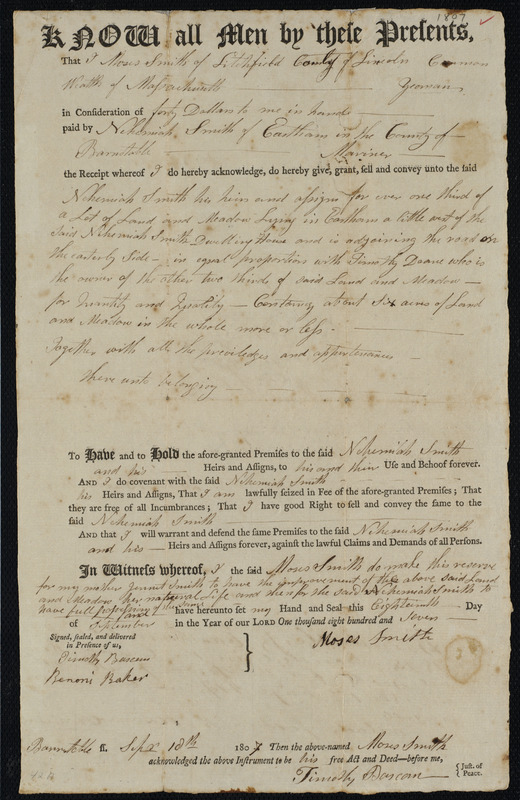 1807
KNOW all Men by these Presents,
That I Moses Smith of Litchfield County of Lincoln Common
Wealth of Massachusetts Yeoman
in Consideration of forty Dollars to me in hand
paid by Nehemiah Smith of Eastham in the County of
Barnstable Mariner
the Receipt whereof I do hereby acknowledge, do hereby give, grant, sell and convey unto the said
Nehemiah Smith his heirs and assigns for ever one third of
a Lot of Land and Meadow Lying in Eastham a little west of the
Said Nehemiah Smith Dwelling House and is adjoining the road on
the easterly Side in equal proportion with Timothy Doane who is
the owner of the other two thirds of said Land and Meadow
for Quantity and Quality Containg about Six acres of Land
and Meadow in the whole more or less
Together with all the previledges and appertenances
there unto belonging
To Have and to Hold the afore-granted Premises to the said Nehemiah Smith
and his Heirs and Assigns, to his and their Use and Behoof forever.
AND I do covenant with the said Nehemiah Smith
his Heirs and Assigns, That I am lawfully seized in Fee of the afore-granted Premises; That
they are free of all Incumbrances; That I have good Right to sell and convey the same to the
said Nehemiah Smith
AND that I will warrant and defend the same Premises to the said Nehemiah Smith
and his Heirs and Assigns forever, against the lawful Claims and Demands of all Persons.
In Witness whereof, I the said Moses Smith do make this reserve
for my mother Smith to have the improvement of the above said Land
and Meadow her natural Life and then for the said Nehemiah Smith to
have full possession of the same
have hereunto set my Hand and Seal this Eighteenth Day
of September in the Year of our LORD One thousand eight hundred and Seven
Signed, sealed, and delivered
in Presence of us,
Moses Smith
Timothy Bascom
Benoni Baker
Barnstable ss. Sept 18th 1807 Then the above-named Moses Smith
acknowledged the above Instrument to be his free Act and Deed—before me,
Timothy Bascom { Just. of Peace.